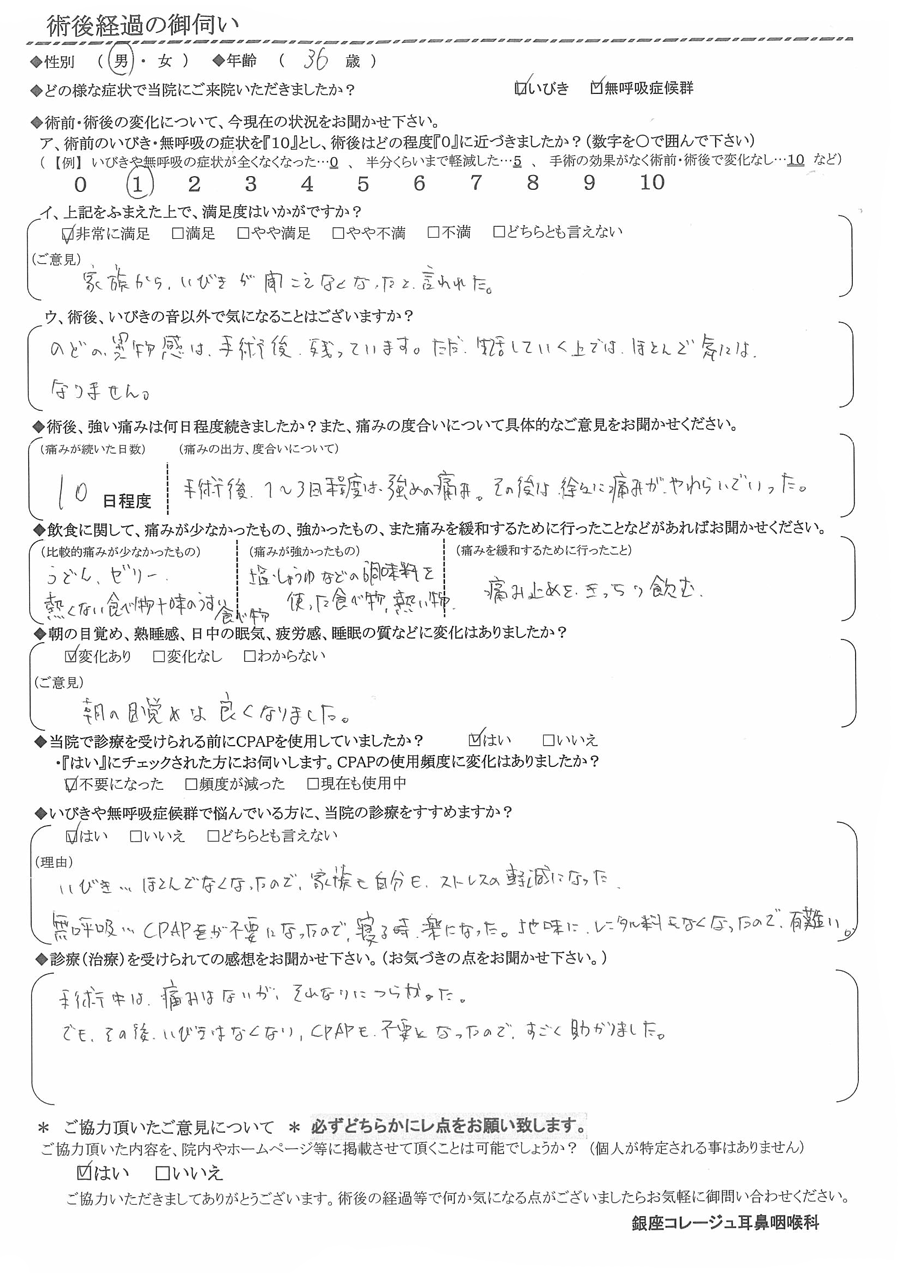 術後経過の御伺い
◆性別 ( 男 ・ 女 ) ◆年齢 ( 36 歳 )
◆どの様な症状で当院にご来院いただきましたか？ ☑いびき ☑無呼吸症候群
◆術前・術後の変化について、今現在の状況をお聞かせ下さい。
ア、術前のいびき・無呼吸の症状を『10』とし、術後はどの程度『0』に近づきましたか？(数字を○で囲んで下さい)
(【例】いびきや無呼吸の症状が全くなくなった…0 、 半分くらいまで軽減した…5 、 手術の効果がなく術前・術後で変化なし…10 など)
0 1 2 3 4 5 6 7 8 9 10
イ、上記をふまえた上で、満足度はいかがですか？
☑非常に満足 □満足 □やや満足 □やや不満 □不満 □どちらとも言えない
(ご意見)
家族から、いびきが聞こえなくなったと言われた。
ウ、術後、いびきの音以外で気になることはございますか？
のどの異物感は、手術後、残っています。ただ、生活していく上では、ほとんど気には、
なりません。
◆術後、強い痛みは何日程度続きましたか？また、痛みの度合いについて具体的なご意見をお聞かせください。
(痛みが続いた日数) (痛みの出方、度合いについて)
10 日程度 手術後、1〜3日程度は、強めの痛み。その後は、徐々に痛みが、やわらいでいった。
◆飲食に関して、痛みが少なかったもの、強かったもの、また痛みを緩和するために行ったことなどがあればお聞かせください。
(比較的痛みが少なかったもの) (痛みが強かったもの) (痛みを緩和するために行ったこと)
うどん、ゼリー、 塩・しょうゆなどの調味料を
熱くない食べ物+味のうすい食べ物 使った食べ物、熱い物、 痛み止めを、きっちり飲む、
◆朝の目覚め、熟睡感、日中の眠気、疲労感、睡眠の質などに変化はありましたか？
☑変化あり □変化なし □わからない
(ご意見)
朝の目覚めは良くなりました。
◆当院で診療を受けられる前にCPAPを使用していましたか？ ☑はい □いいえ
・『はい』にチェックされた方にお伺いします。CPAPの使用頻度に変化はありましたか？
☑不要になった □頻度が減った □現在も使用中
◆いびきや無呼吸症候群で悩んでいる方に、当院の診療をすすめますか？
☑はい □いいえ □どちらとも言えない
(理由)
いびき… ほとんどなくなったので、家族も自分も、ストレスの軽減になった、
無呼吸… CPAPが不要になったので、寝る時、楽になった。地味に、レンタル料もなくなったので、有難い。
◆診療(治療)を受けられての感想をお聞かせ下さい。(お気づきの点をお聞かせ下さい。)
手術中は、痛みはないが、それなりにつらかった。
でも、その後、いびきはなくなり、CPAPも、不要となったので、すごく助かりました。
＊ ご協力頂いたご意見について ＊ 必ずどちらかにレ点をお願い致します。
ご協力頂いた内容を、院内やホームページ等に掲載させて頂くことは可能でしょうか？ (個人が特定される事はありません)
☑はい □いいえ
ご協力いただきましてありがとうございます。術後の経過等で何か気になる点がございましたらお気軽に御問い合わせください。
銀座コレージュ耳鼻咽喉科